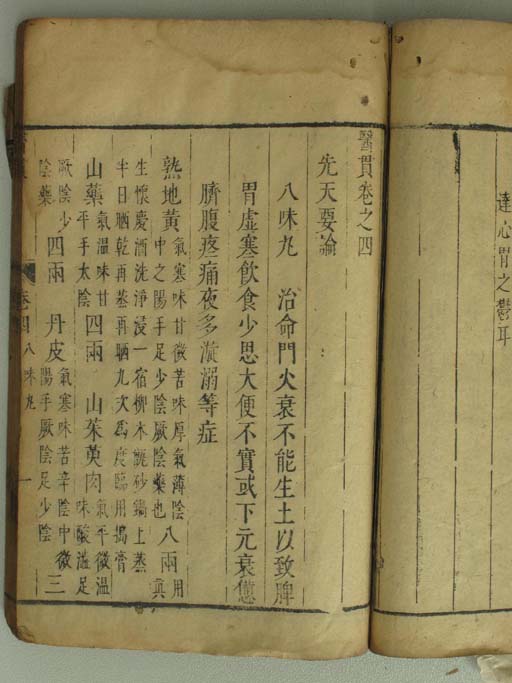 達心胃之鬱耳
醫貫卷之四
先天要論
八味丸　治命門火衰不能生土以致脾
胃虛寒飲食少思大便不實或下元衰憊
臍腹疼痛夜多漩溺等症
熟地黃 氣寒味甘微苦味厚氣薄陰
中之陽手足少陰厥陰藥也 八兩 用
真
生懷慶酒洗淨浸一宿柳木甑砂鍋上蒸
半日晒乾再蒸再晒九次為度臨用搗膏
山藥 氣溫味甘
平手太陰 四兩　山茱萸肉 氣平微溫
味酸澁足
厥陰少
陰藥 四兩　丹皮 氣寒味苦辛陰中微
陽手厥陰足少陰 三
卷四 八味丸 一